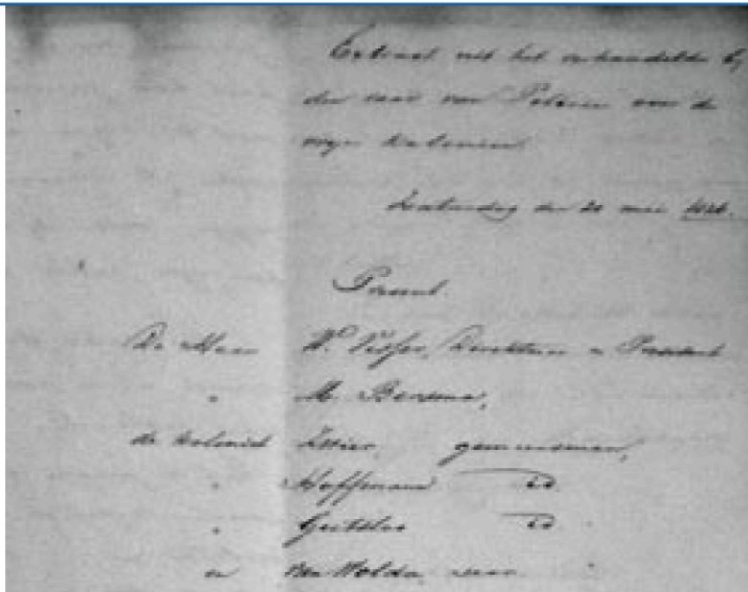 Extract uit het verhandelde bij
den raad van Policie voor de
vrije Kolonien
Zaturdag den 20 mei
Present.
De Heer W. Visser, Direkteur en President
" M. Bersma,
de kolonist gemeensman,
" Hoffman id
" id
en van Wolda